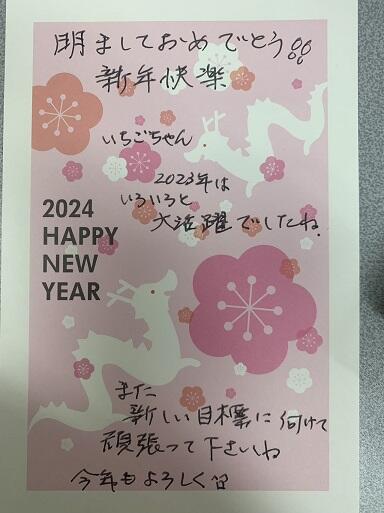 明ましておめでとう
新年快楽
いちごちゃん
2023年は
いろいろと
大活躍でしたね.
2024
HAPPY
NEW
YEAR
また
新しい目標に向けて
頑張って下さいね
今年もよろしく